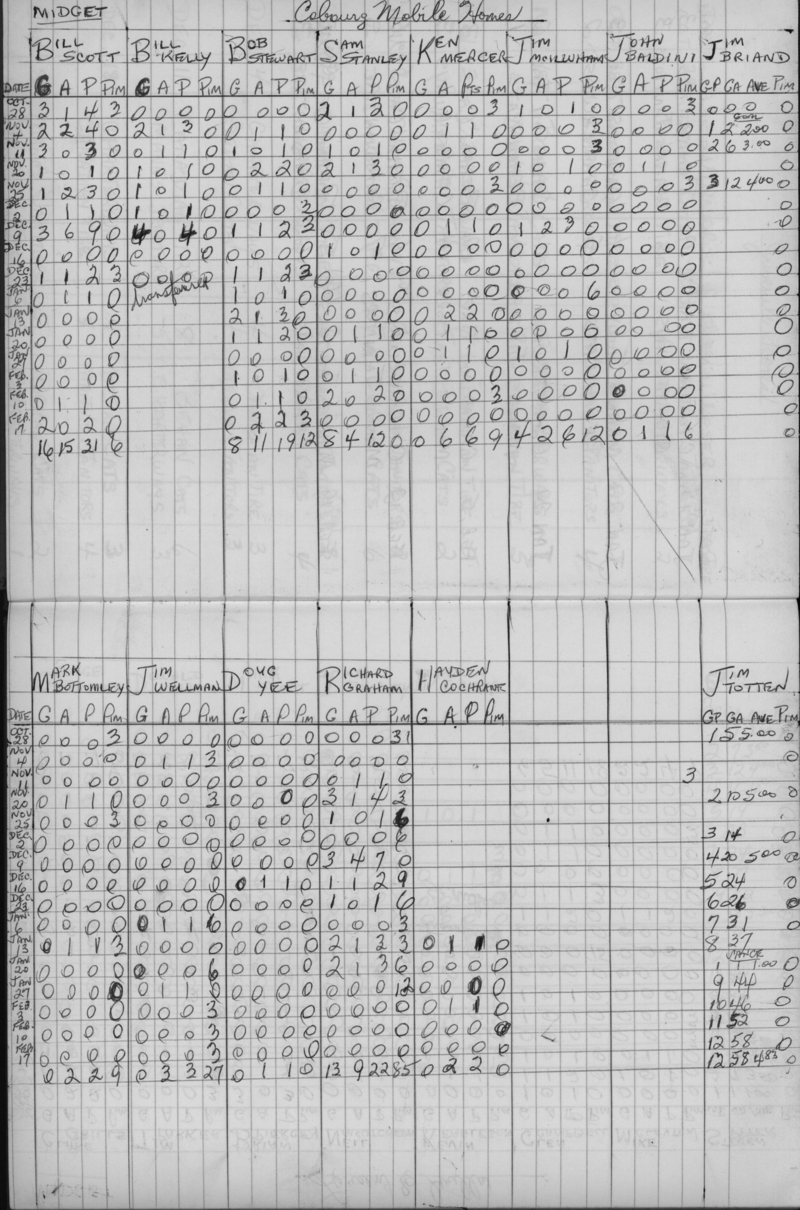 MIDGET Cobourg Mobile Homes
BILL SCOTT BILL KELLY BOB STEWART SAM STANLEY KEN MERCER JIM MCILLWHAM JOHN BALDINI JIM BRIAND
DATE G A P Pim G A P Pim G A P Pim G A P Pim G A Pts Pim G A P Pim G A P Pim GP GA AVE Pim
OCT. 28 3 1 4 3 0 0 0 0 0 0 0 0 2 1 3 0 0 0 0 3 1 0 1 0 0 0 0 3 0 0 0 0
NOV. 4 2 2 4 0 2 1 3 0 0 1 1 0 0 0 0 0 0 1 1 0 0 0 0 3 0 0 0 0 1 2 2.00 0
NOV. 11 3 0 3 0 0 1 1 0 1 0 1 0 1 0 1 0 0 0 0 0 0 0 0 3 0 0 0 0 2 6 3.00 0
NOV. 20 1 0 1 0 1 0 1 0 0 2 2 0 2 1 3 0 0 0 0 0 1 0 1 0 0 1 1 0
NOV. 25 1 2 3 0 1 0 1 0 0 1 1 0 0 0 0 0 0 0 0 3 0 0 0 0 0 0 0 3 3 12 4.00 0
DEC. 2 0 1 1 0 1 0 1 0 0 0 0 3 0 0 0 0 0 0 0 0 0 0 0 0 0 0 0 0 0
DEC. 9 3 6 9 0 4 0 4 0 1 1 2 3 0 0 0 0 0 1 1 0 1 2 3 0 0 0 0 0 0
DEC. 16 0 0 0 0 0 0 0 0 0 0 0 0 1 0 1 0 0 0 0 0 0 0 0 0 0 0 0 0 0
DEC 23 1 1 2 3 0 0 0 0 1 1 2 3 0 0 0 0 0 0 0 0 0 0 0 0 0 0 0 0 0
JAN 6 0 1 1 0 transferred 1 0 1 0 0 0 0 0 0 0 0 0 0 0 0 6 0 0 0 0 0
JAN 13 0 0 0 0 2 1 3 0 0 0 0 0 0 2 2 0 0 0 0 0 0 0 0 0 0
JAN 20 0 0 0 0 1 1 2 0 0 1 1 0 0 1 1 0 0 0 0 0 0 0 0 0 0
JAN 27 0 0 0 0 0 0 0 0 0 0 0 0 0 1 1 0 1 0 1 0 0 0 0 0 0
FEB. 3 0 0 0 0 1 0 1 0 0 1 1 0 0 0 0 0 0 0 0 0 0 0 0 0 0
FEB. 10 0 1 1 0 0 1 1 0 2 0 2 0 0 0 0 3 0 0 0 0 0 0 0 0 0
FEB. 17 2 0 2 0 0 2 2 3 0 0 0 0 0 0 0 0 0 0 0 0 0 0 0 0 0
16 15 31 6 8 11 19 12 8 4 12 0 0 6 6 9 4 2 6 12 0 1 1 6 0
MARK BOTTOMLEY JIM WELLMAN DOUG YEE RICHARD GRAHAM HAYDEN COCHRANE JIM TOTTEN
DATE G A P Pim G A P Pim G A P Pim G A P Pim G A P Pim GP GA AVE Pim
OCT. 28 0 0 0 3 0 0 0 0 0 0 0 0 0 0 0 31 1 5 5.00 0
NOV 4 0 0 0 0 0 1 1 3 0 0 0 0 0 0 0 0 0
NOV. 11 0 0 0 0 0 0 0 0 0 0 0 0 0 1 1 0 3
NOV. 20 0 1 1 0 0 0 0 3 0 0 0 0 3 1 4 3 2 10 5.00 0
NOV 25 0 0 0 3 0 0 0 0 0 0 0 0 1 0 1 6
DEC. 2 0 0 0 0 0 0 0 0 0 0 0 0 0 0 0 6 3 14 0
DEC. 9 0 0 0 0 0 0 0 0 0 0 0 0 3 4 7 0 4 20 5.00 0
DEC. 16 0 0 0 0 0 0 0 0 0 1 1 0 1 1 2 9 5 24 0
DEC. 23 0 0 0 0 0 0 0 0 0 0 0 0 1 0 1 6 6 26 0
JAN. 6 0 0 0 0 0 1 1 6 0 0 0 0 0 0 0 3 7 31 0
JAN. 13 0 1 1 3 0 0 0 0 0 0 0 0 2 1 2 3 0 1 1 0 8 37
JAN 20 0 0 0 0 0 0 0 6 0 0 0 0 2 1 3 6 0 0 0 0 1 1 1.00 0
JAN 27 0 0 0 0 0 1 1 0 0 0 0 0 0 0 0 12 0 0 0 0 9 44 0
FEB 3 0 0 0 0 0 0 0 3 0 0 0 0 0 0 0 0 0 1 1 0 10 46 0
FEB. 10 0 0 0 0 0 0 0 3 0 0 0 0 0 0 0 0 0 0 0 0 11 52 0
FEB 17 0 0 0 0 0 0 0 3 0 0 0 0 0 0 0 0 0 0 0 0 12 58 0
0 2 2 9 0 3 3 27 0 1 1 0 13 9 22 85 0 2 2 0 12 58 4.83 0